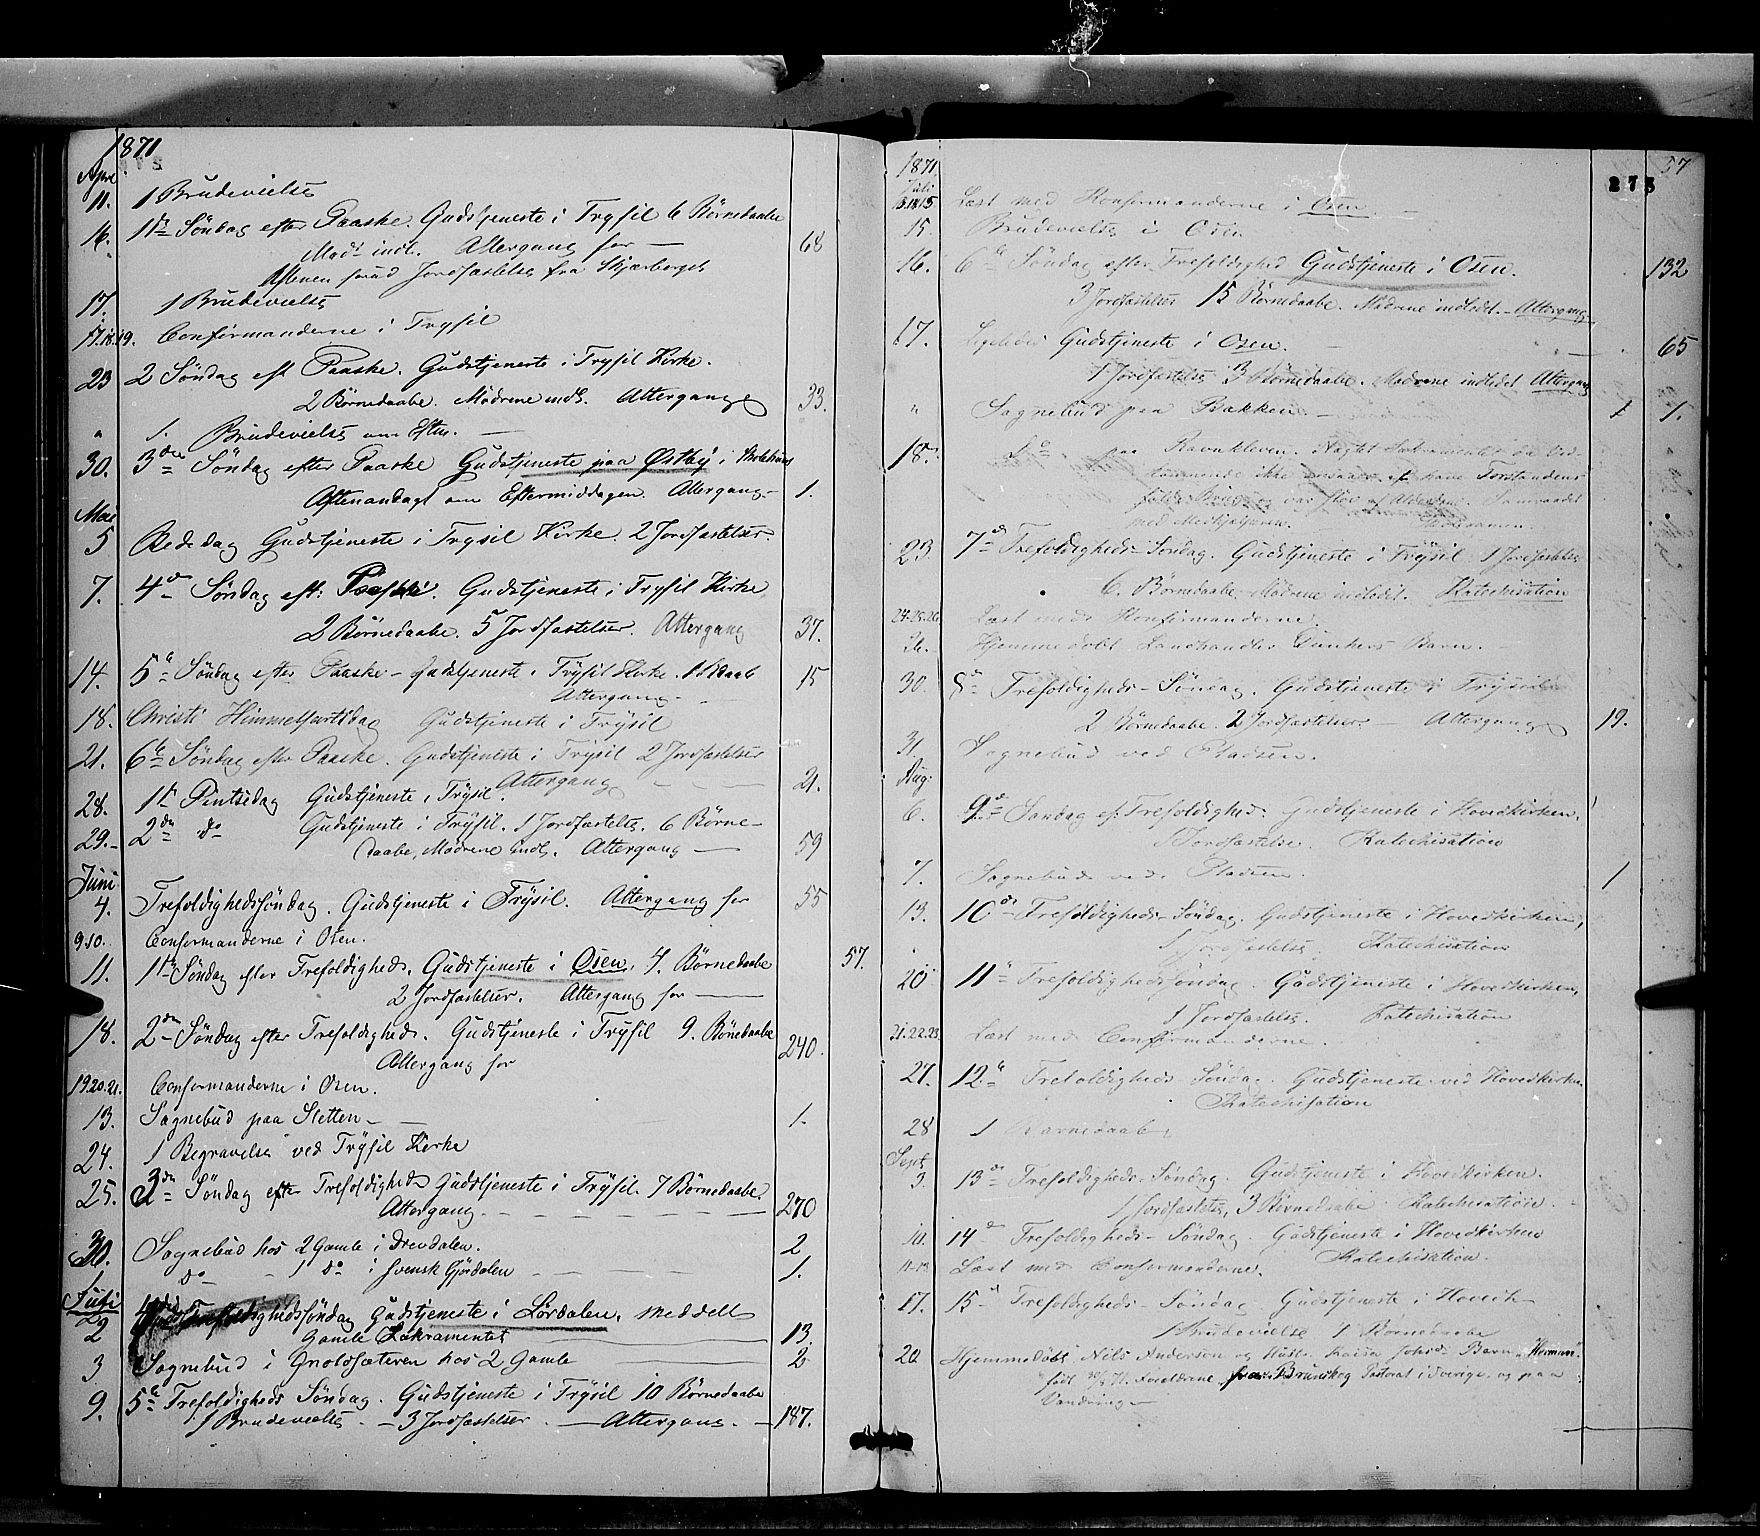 1871
April
11. 1 Brudevielse
16. 1ste Søndag efter Paaske. Gudstjeneste i Trysil 6 Børnedaabe
Mødr. indl. Altergang for — 68
Jordfæstelse fra Skjærberget
17. 1 Brudevielse
17.18.19. Confirmanderne i Trysil
23 2 Søndag eft Paaske. Gudstjeneste i Trysil Kirke.
2 Børnedaabe. Mødrene indl. Altergang 33.
" 1. Brudevielse om Eftm. —
30. 3die Søndag efter Paaske Gudstjeneste paa Østby i Skolehuus
Aftenandagt om Eftermiddagen. Altergang — 1.
Mai
5 Bededag Gudstjeneste i Trysil Kirke. 2 Jordfæstelser.
7. 4de Søndag eft: Paaske. Gudstjeneste i Trysil Kirke
2 Børnedaabe. 5 Jordfæstelser. Altergang 37.
14. 5te Søndag efter Paaske — Gudstjeneste i Trysil Kirke. 1 Bdaab 15
Altergang —
18. Christi Himmelfartsdag Gudstjeneste i Trysil
21. 6te Søndag efter Paaske. Gudstjeneste i Trysil 2 Jordfæstelser
Altergang — 21.
28. 1ste Pintsedag Gudstjeneste i Trysil.
29. 2den do Gudstjeneste i Trysil. 1 Jordfæstelse. 6 Børne-
daabe, Mødrene indl. Altergang — 59
Juni
4. Trefoldighedssøndag. Gudstjeneste i Trysil. Altergang for 55
9.10. Confirmanderne i Osen.
11. 1ste Søndag efter Trefoldigheds. Gudstjeneste i Osen. 4. Børnedaabe 57.
2 Jordfæstelser. Altergang for —
18. 2den Søndag efter Trefoldigheds. Gudstjeneste i Trysil 9. Børnedaabe
Altergang for 240.
19.20.21. Confirmanderne i Osen.
13. Sognebud paa Sletten — 1.
24. 1 Begravelse ved Trysil Kirke
25. 3die Søndag efter Trefoldigheds Gudstjeneste i Trysil. 7 Børnedaabe.
Altergang — 270
30. Sognebud hos 2 Gamle i Drevdalen. 2
1 do 1 do i svensk Gjørdalen — 1.
Juli
2 4de Trefoldighedssøndag Gudstjeneste i Lørdalen. Meddelt
Gamle Sakramentet 13.
3 Sognebud i Gnoldsæteren hos 2 Gamle 2
9. 5te Trefoldigheds Søndag. Gudstjeneste i Trysil 10 Børnedaabe
1 Brudevielse — 3 Jordfæstelser — Altergang. — 187.
57
273
1871
Juli
13.14.15. Læst med Konfirmanderne i Osen. —
15. Brudevielse i Osen
16. 6te Søndag efter Trefoldighed Gudstjeneste i Osen. 132
3 Jordfæstelser 15 Børnedaabe. Mødrene indledet. — Altergang —
17. Ligeledes Gudstjeneste i Osen. — 65
1 Jordfæstelse 3 Børnedaabe. Mødrene indledet Altergang
" Sognebud paa Bakken. — 1 1.
18. do paa Ravnkleven. Nægtet Sakramentet da
ikke at have Forstandens
fulde Brug og var sløv af Alderdom.
med Medhjelperen.
23 7de Trefoldigheds-Søndag. Gudstjeneste i Trysil 1 Jordfæstelse
6. Børnedaabe Mødrene indledet. Katechisation
24.25.26. Læst med Konfirmanderne.
26. Hjemmedøbt Landhandler Dunkers Barn. —
30. 8de Trefoldigheds-Søndag. Gudstjeneste i Trysil
2 Børnedaabe. 2 Jordfæstelser — Altergang 19.
31 Sognebud ved Pladsen.
Aug:
6. 9de Søndag ef. Trefoldighed. Gudstjeneste i Hovedkirken.
1 Jordfæstelse. Katechisation
7. Sognebud ved Pladsen. 1
13. 10de Trefoldigheds Søndag. Gudstjeneste i Hovedkirken,
1 Jordfæstelse. Katechisation
20 11te Trefoldighedssøndag. Gudstjeneste i Hovedkirken,
1 Jordfæstelse. Katechisation
21.22.23. Læst med Confirmanderne.
27. 12te Trefoldigheds-Søndag. Gudstjeneste ved Hovedkirken
Katechisation
28 1 Barnedaab.
Sept.
3. 13de Trefoldigheds-Søndag. Gudstjeneste i Hovedkirken.
1 Jordfæstelse, 3 Børnedaabe Katechisation.
10. 14de Trefoldigheds-Søndag. Gudstjeneste i Hovedkirken
Katechisation.
11-13 Læst med Confirmanderne.
17. 15de Trefoldigheds-Søndag Gudstjeneste i Hovedk
1 Brudevielse 1 Børnedaabe
20 Hjemmedøbt Nils Anderson og Hustr. Kaisa Johsd. Barn "Herman".
født Forældrene fra Brunskog Pastorat i Sverige, og paa
Vandring —